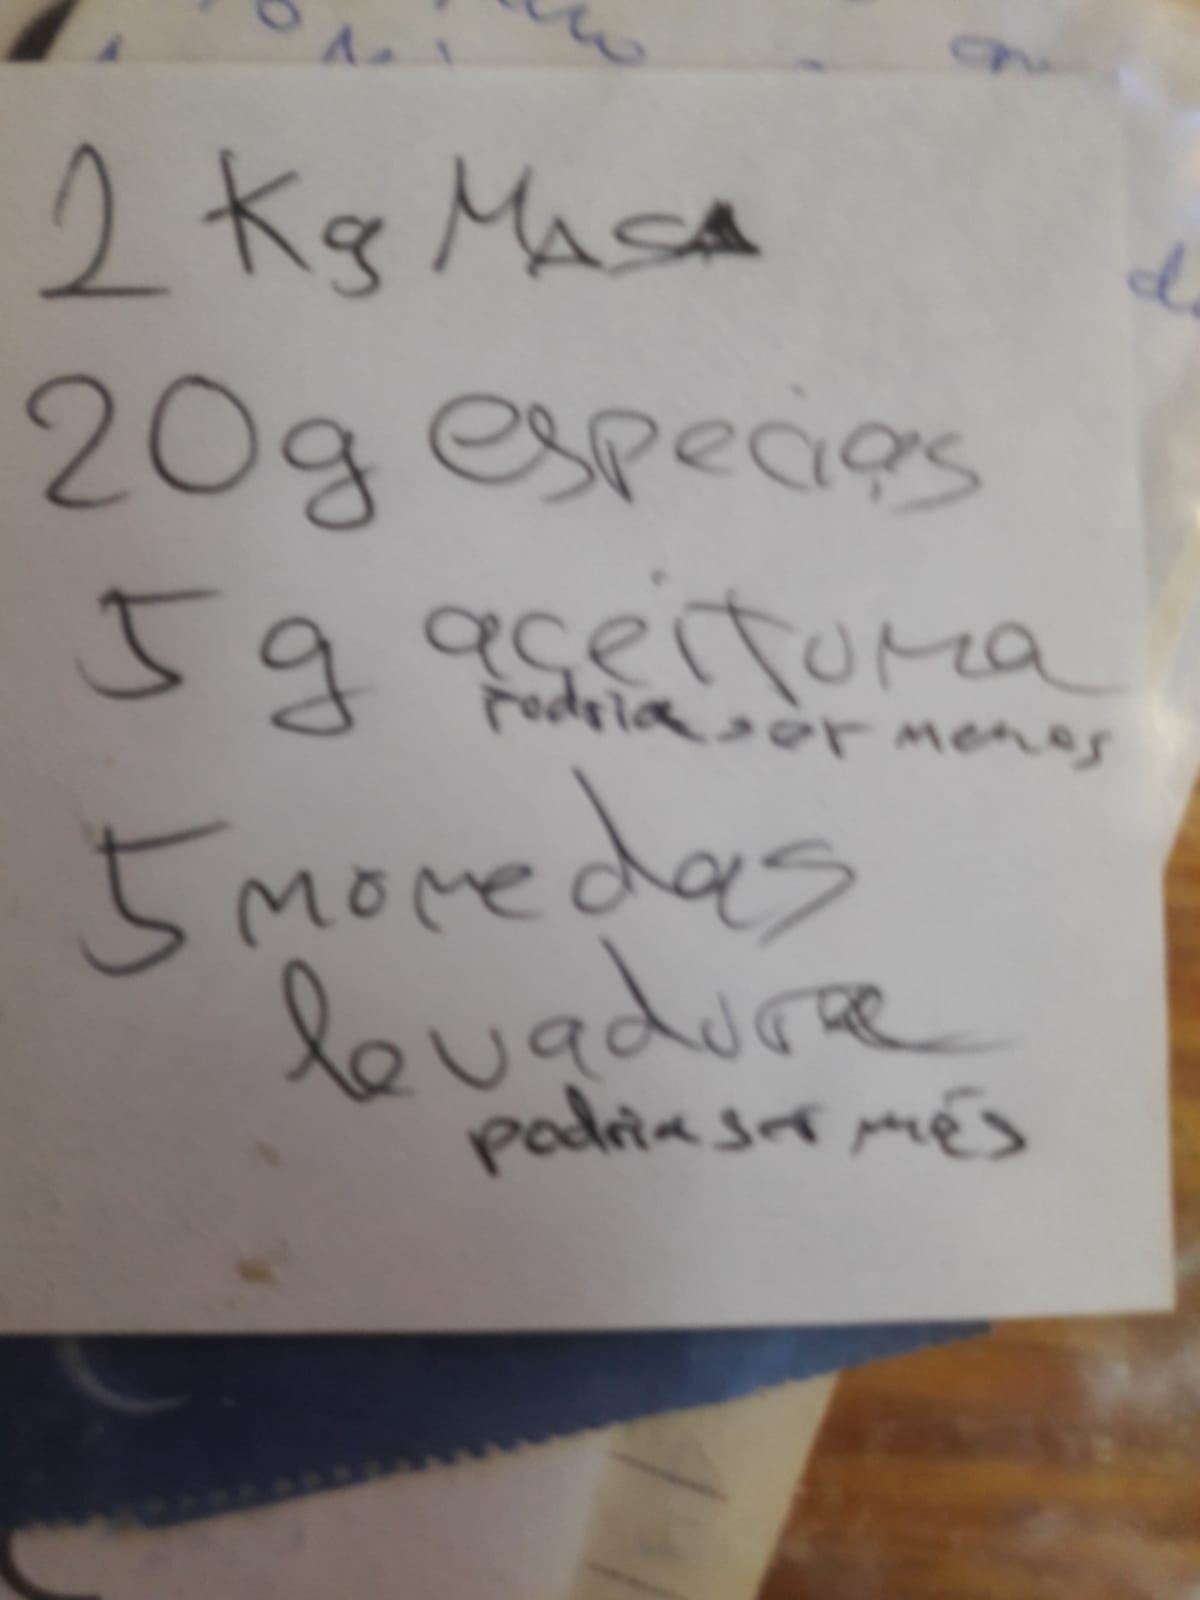 2 Kg MASA
20g especias
5 g aceituna
Podria ser menos
5 monedas
levadura
podria ser més